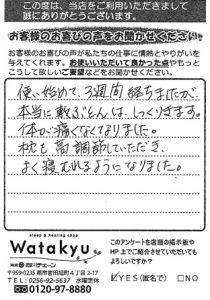 この度は、当店をご利用いただきまして
誠にありがとうございます。
お客様のお喜びの声をお聞かせください
お客様のお喜びの声が私たちの仕事に情熱とやりがいを
与えてくれます。お使いいただいて良かった点やもっと
こうして欲しいご要望などをお聞かせください。
使い始めて、3週間経ちましたが
本当に敷ぶとんは、しっくりきます。
体が痛くなくなりました。
枕も高調節していただき、
よく寝むれるようになりました。
sleep & healing shop
Watakyu
〒959-0235 燕市吉田旭町4丁目2-17
TEL：0256-92-5637 水曜定休
0120-97-8880
このアンケートを店頭の掲示板や
HP上でご紹介させていただいても
よろしいですか？
YES（匿名で） □NO